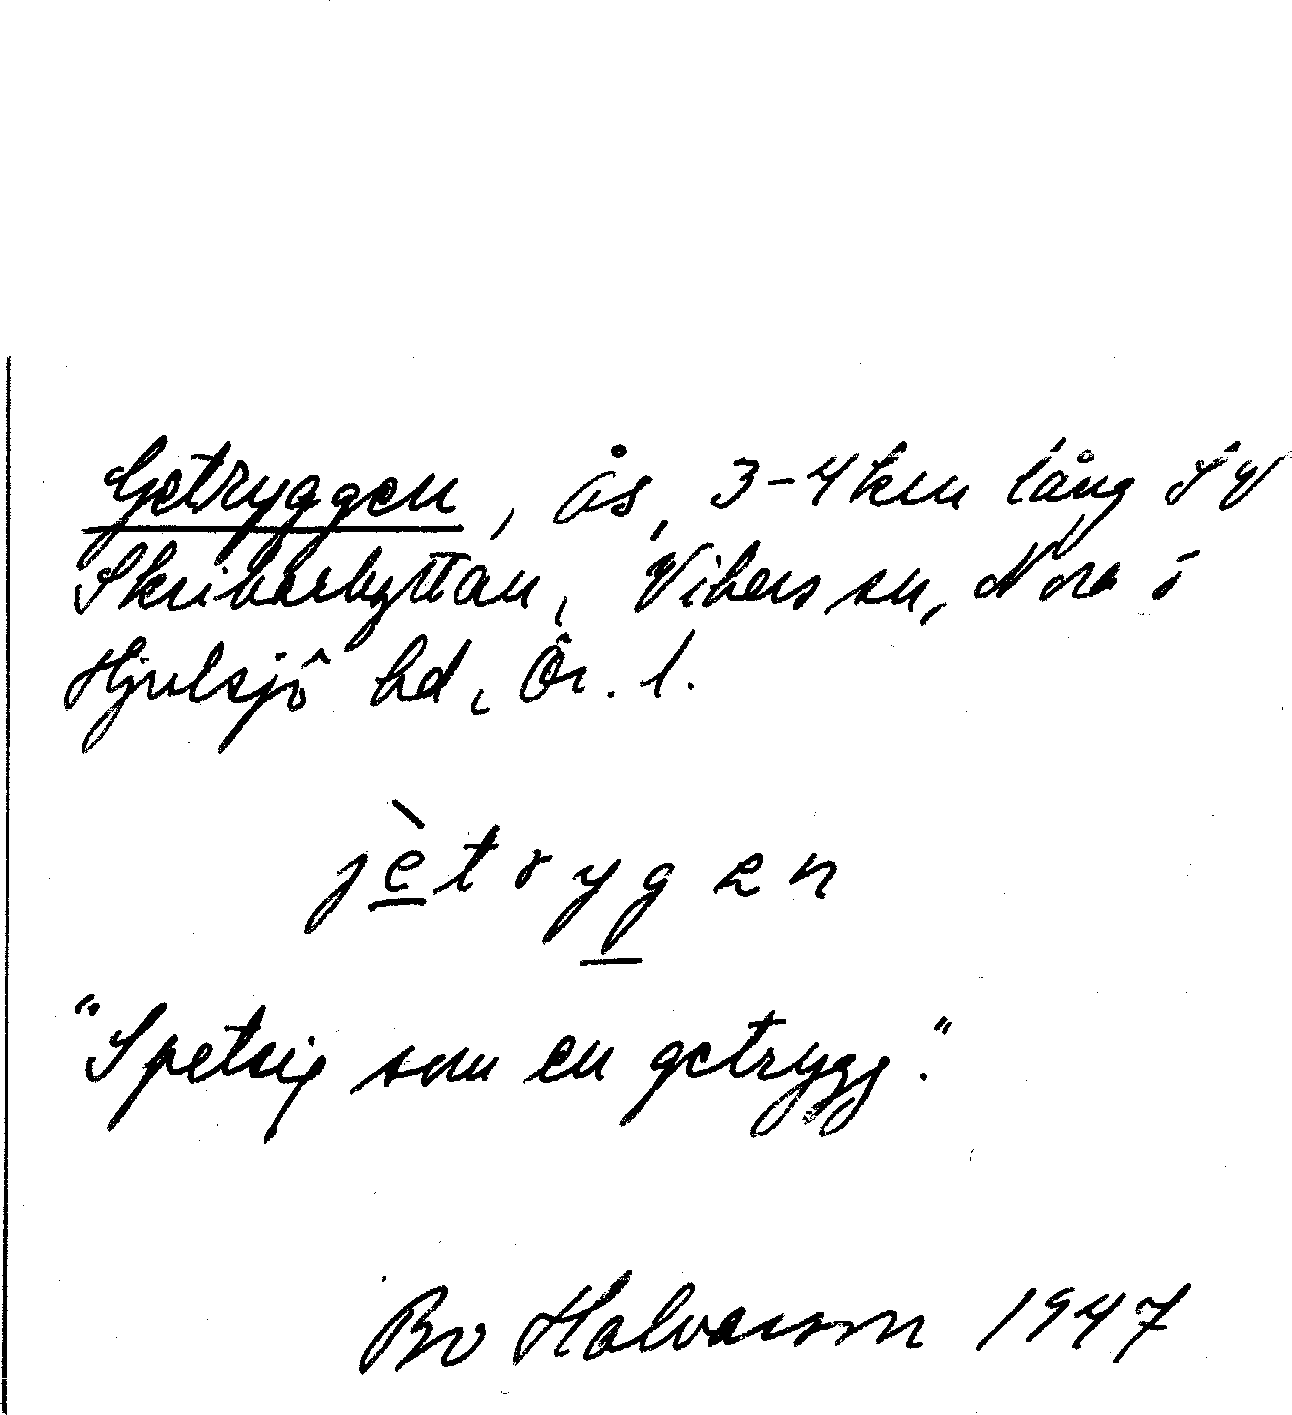 Getryggen, ås, 3-4 km lång SV
Skrikarhyttan, Vikers sn, Nora ö
Hjulsjö hd, Ör. l.
jètrygen
"Spetsig som en getrygg."
Bo Halvarsson 1947